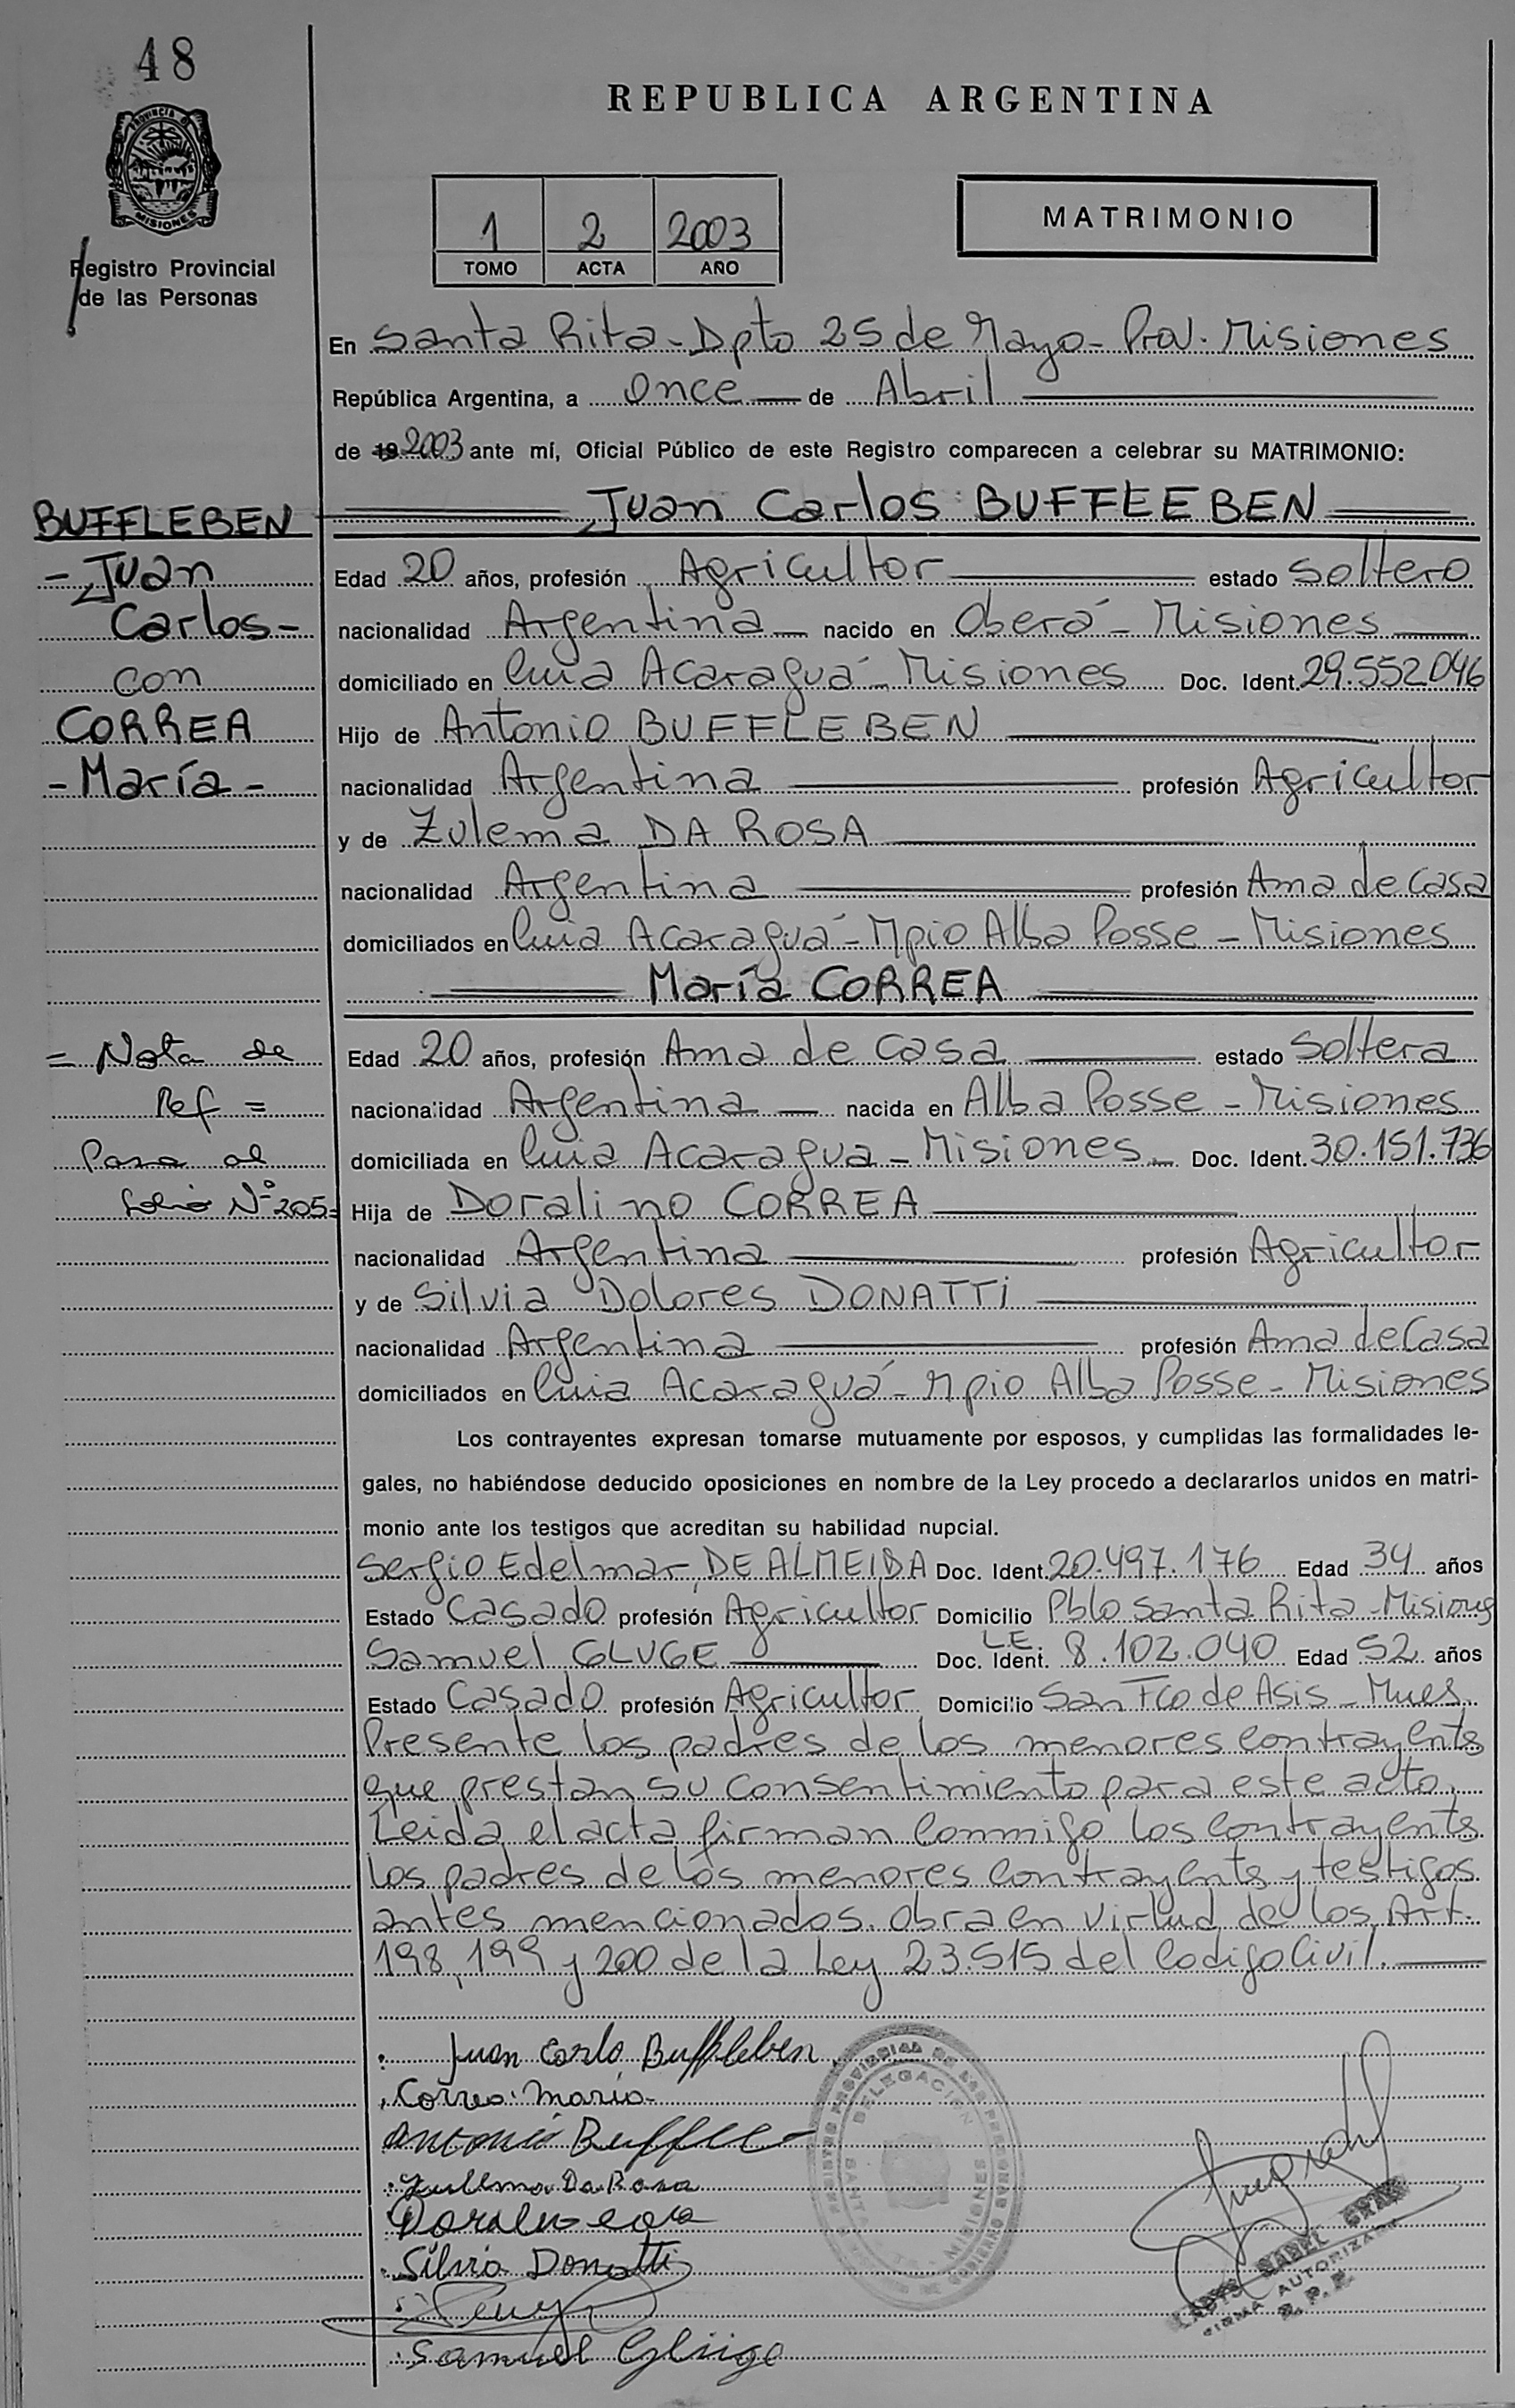 48
REPUBLICA ARGENTINA
PROVINCIA DE
MISIONES
Registro Provincial
de las Personas
1 2 2003
TOMO ACTA AÑO
MATRIMONIO
En Santa Rita - Dpto 25 de Mayo - Prov. Misiones
República Argentina, a once de Abril
de 19 2003 ante mí, Oficial Público de este Registro comparecen a celebrar su MATRIMONIO:
BUFFLEBEN
- Juan
Carlos -
con
CORREA
- María -
Juan Carlos BUFFLEBEN
Edad 20 años, profesión Agricultor estado Soltero
nacionalidad Argentina nacido en Oberá - Misiones
domiciliado en Acaraguá - Misiones Doc. Ident. 29.552.046
Hijo de Antonio BUFFLEBEN
nacionalidad Argentina profesión Agricultor
y de Zulema DA ROSA
nacionalidad Argentina profesión Ama de Casa
domiciliados en Acaraguá - Mpio Alba Posse - Misiones
María CORREA
= Nota de
Ref =
Pasa al
folio Nº 205=
Edad 20 años, profesión Ama de Casa estado Soltera
nacionalidad Argentina nacida en Alba Posse - Misiones
domiciliada en Acaragua - Misiones - Doc. Ident. 30.151.736
Hija de Doralino CORREA
nacionalidad Argentina profesión Agricultor
y de Silvia Dolores DONATTI
nacionalidad Argentina profesión Ama de Casa
domiciliados en Acaraguá - Mpio Alba Posse - Misiones
Los contrayentes expresan tomarse mutuamente por esposos, y cumplidas las formalidades le-
gales, no habiéndose deducido oposiciones en nombre de la Ley procedo a declararlos unidos en matri-
monio ante los testigos que acreditan su habilidad nupcial.
Sergio Edelmar DE ALMEIDA Doc. Ident. 20.497.176 Edad 34 años
Estado Casado profesión Agricultor Domicilio Pblo Santa Rita - Misiones
Samuel GLUGE L.E. Doc. Ident. 8.102.040 Edad 52 años
Estado Casado profesión Agricultor Domicilio San Fco de Asis - Mnes
Presente los padres de los menores contrayents
que prestan su consentimiento para este acto.
Leida el acta firman conmigo los contrayents
los padres de los menores contrayents y testigos
antes mencionados. Obra en virtud de los Art.
198, 199 y 200 de la Ley 23.515 del Codigo Civil.
Juan Carlo Buffleben
Correa Maria
Antonio Buffle
Da Rosa
Silvia Donatti
Samuel Glüge
DELEGACION
SANTA
MISIONES
FIRMA AUTORIZADA